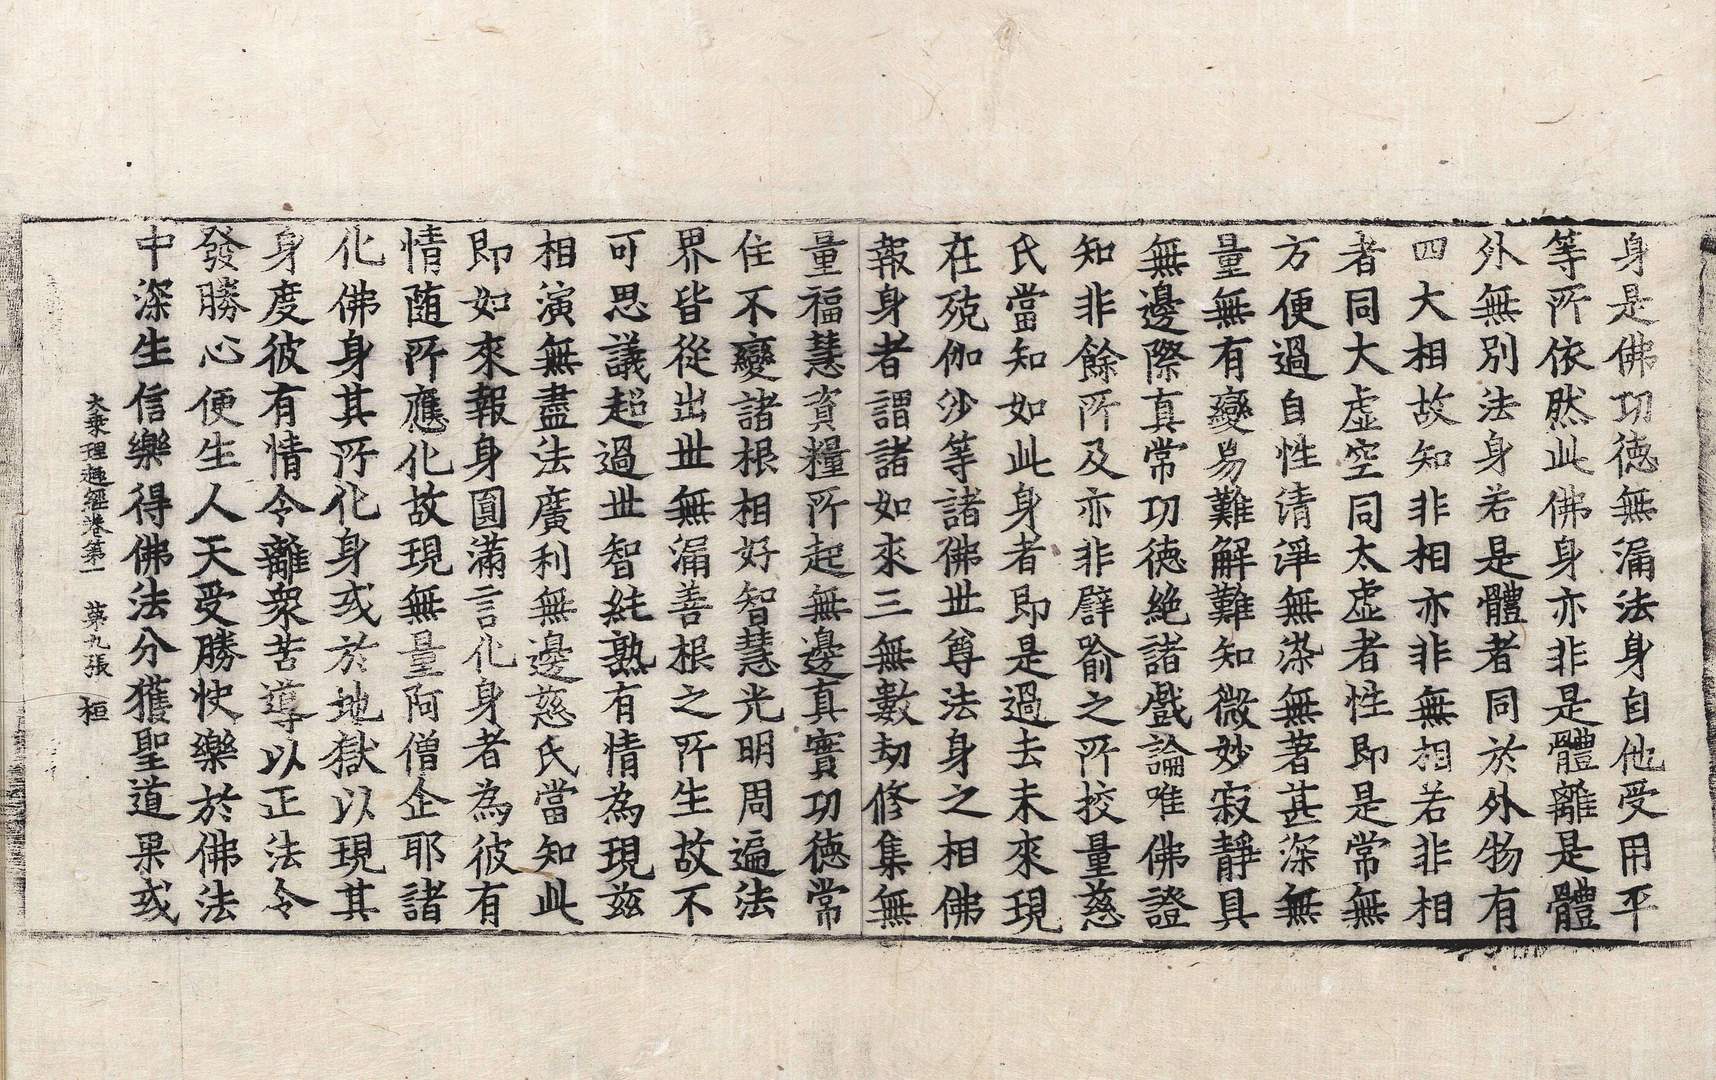 身是佛功徳無漏法身自他受用平
等所依然此佛身亦非是體離是體
外無別法身若是體者同於外物有
四大相故知非相亦非無相若非相
者同大虛空同太虛者性即是常無
方便過自性清淨無染無著甚深無
量無有變易難解難知微妙寂靜具
無邊際真常功徳絶諸戲論唯佛證
知非餘所及亦非譬喻之所挍量慈
氏當知如此身者即是過去未來現
在殑伽沙等諸佛世尊法身之相佛
報身者謂諸如來三無數劫修集無
量福慧資糧所起無邊真實功徳常
住不變諸根相好智慧光明周遍法
界皆從出世無漏善根之所生故不
可思議超過世智純熟有情為現茲
相演無盡法廣利無邊慈氏當知此
即如來報身圓滿言化身者為彼有
情随所應化故現無量阿僧企耶諸
化佛身其所化身或於地獄以現其
身度彼有情令離衆苦導以正法令
發勝心便生人天受勝快樂於佛法
中深生信樂得佛法分獲聖道果或
大乗理趣經卷第一 第九張 桓